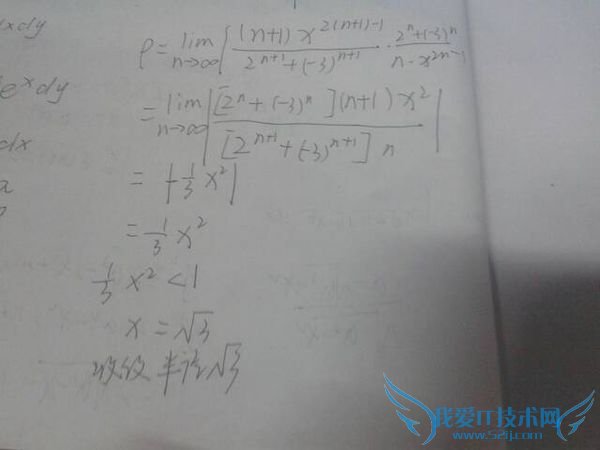 dxdy
e^x dy
dx
ρ = lim n→∞ | (n+1) x^{2(n+1)-1} / 2^{n+1}+(-3)^{n+1} · 2^n+(-3)^n / n·x^{2n-1}
= lim n→∞ | [2^n+(-3)^n](n+1)x^2 / [2^{n+1}+(-3)^{n+1}] n |
= |-1/3 x^2|
= 1/3 x^2
1/3 x^2 < 1
x = √3
收敛半径√3
我爱IT技术网
www.52ij.com